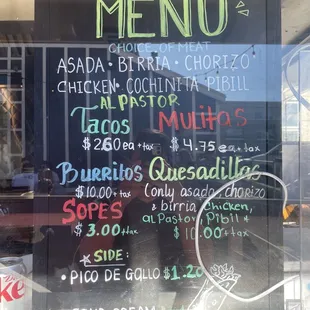 MENU
CHOICE OF MEAT
ASADA • BIRRIA • CHORIZO •
• CHICKEN • COCHINITA PIBILL
AL PASTOR
Tacos Mulitas
$2.60 ea + tax $4.75 ea + tax
Burritos Quesadillas
$10.00 + tax (only asado, chorizo
SOPES & birria Chicken,
$3.00 + tax al Pastor, Pibil &
$10.00 + tax
★ SIDE:
• PICO DE GALLO $1.20
SOUR CREAM
ke